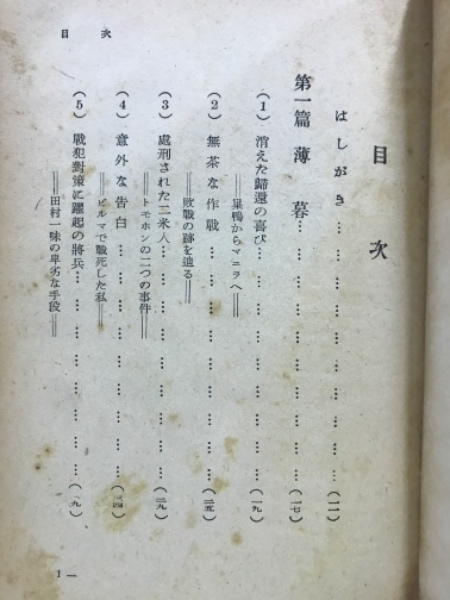 目次
目次
はしがき…………………………(一一)
第一篇 薄暮…………………………(一七)
(1) 消えた歸還の喜び…………………………(一九)
══巣鴨からマニラへ══
(2) 無茶な作戰…………………………(二五)
══敗戰の跡を辿る══
(3) 處刑された二米人…………………………(二九)
══トモホンの二つの事件══
(4) 意外な告白…………………………(三四)
══ビルマで戰死した私══
(5) 戰犯對策に躍起の將兵…………………………(九)
══田村一味の卑劣な手段══
1